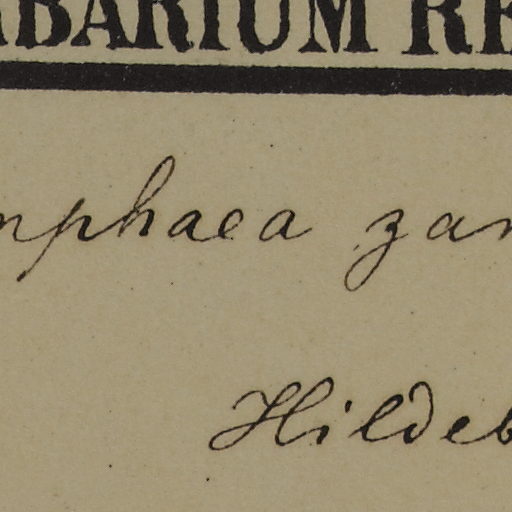 RBARIUM RE
mphaea zan
Hildeb